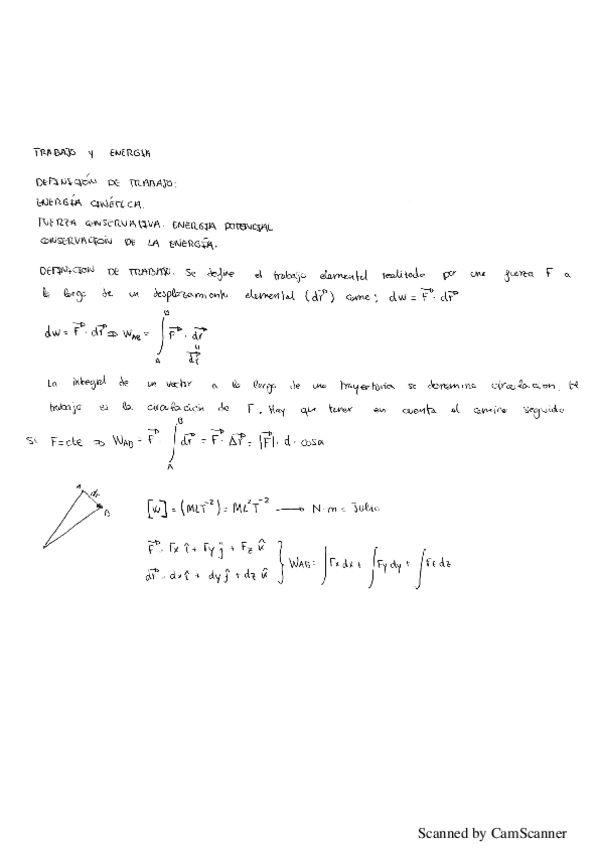 TRABAJO Y ENERGÍA
DEFINICIÓN DE TRABAJO:
ENERGÍA CINÉTICA.
FUERZA CONSERVATIVA. ENERGIA POTENCIAL
CONSERVACION DE LA ENERGÍA.
DEFINICION DE TRABAJO. Se define el trabajo elemental realizado por una fuerza F a
lo largo de un desplazamiento elemental (dr⃗) como: dw = F⃗ · dr⃗
dw = F⃗ · dr⃗ ⇒ W_AB = ∫_A^B F⃗ · dr⃗
" dr⃗
La integral de un vector a lo largo de una trayectoria se denomina circulacion. El
trabajo es la circulación de F. Hay que tener en cuenta el camino seguido
Si F=cte ⇒ W_AB = F⃗ ∫_A^B dr⃗ = F⃗ · Δr⃗ = |F⃗| · d · cosα
A dr⃗ B
[W] = (MLT⁻²) = ML²T⁻² → N·m = Julio
F⃗ = Fx î + Fy ĵ + Fz k̂
dr⃗ = dx î + dy ĵ + dz k̂ } W_AB = ∫Fx dx + ∫Fy dy + ∫Fz dz
Scanned by CamScanner